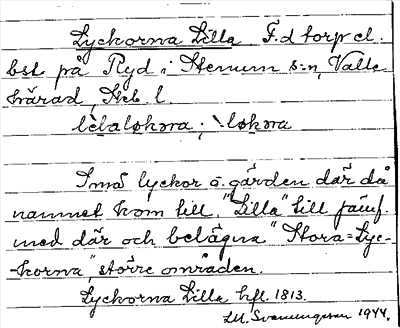 Lyckorna Lilla F.d torp el.
bst på Ryd i Stenum s:n, Valle
härad, Skb. l.
lèlaløkəra ; `løkəra
Små lyckor å gården där då
namnet kom till. "Lilla" till jämf.
med där och belägna "Stora=Lyc-
-korna", större områden.
Lyckorna Lilla hfl. 1813.
Svenungsson 1944.